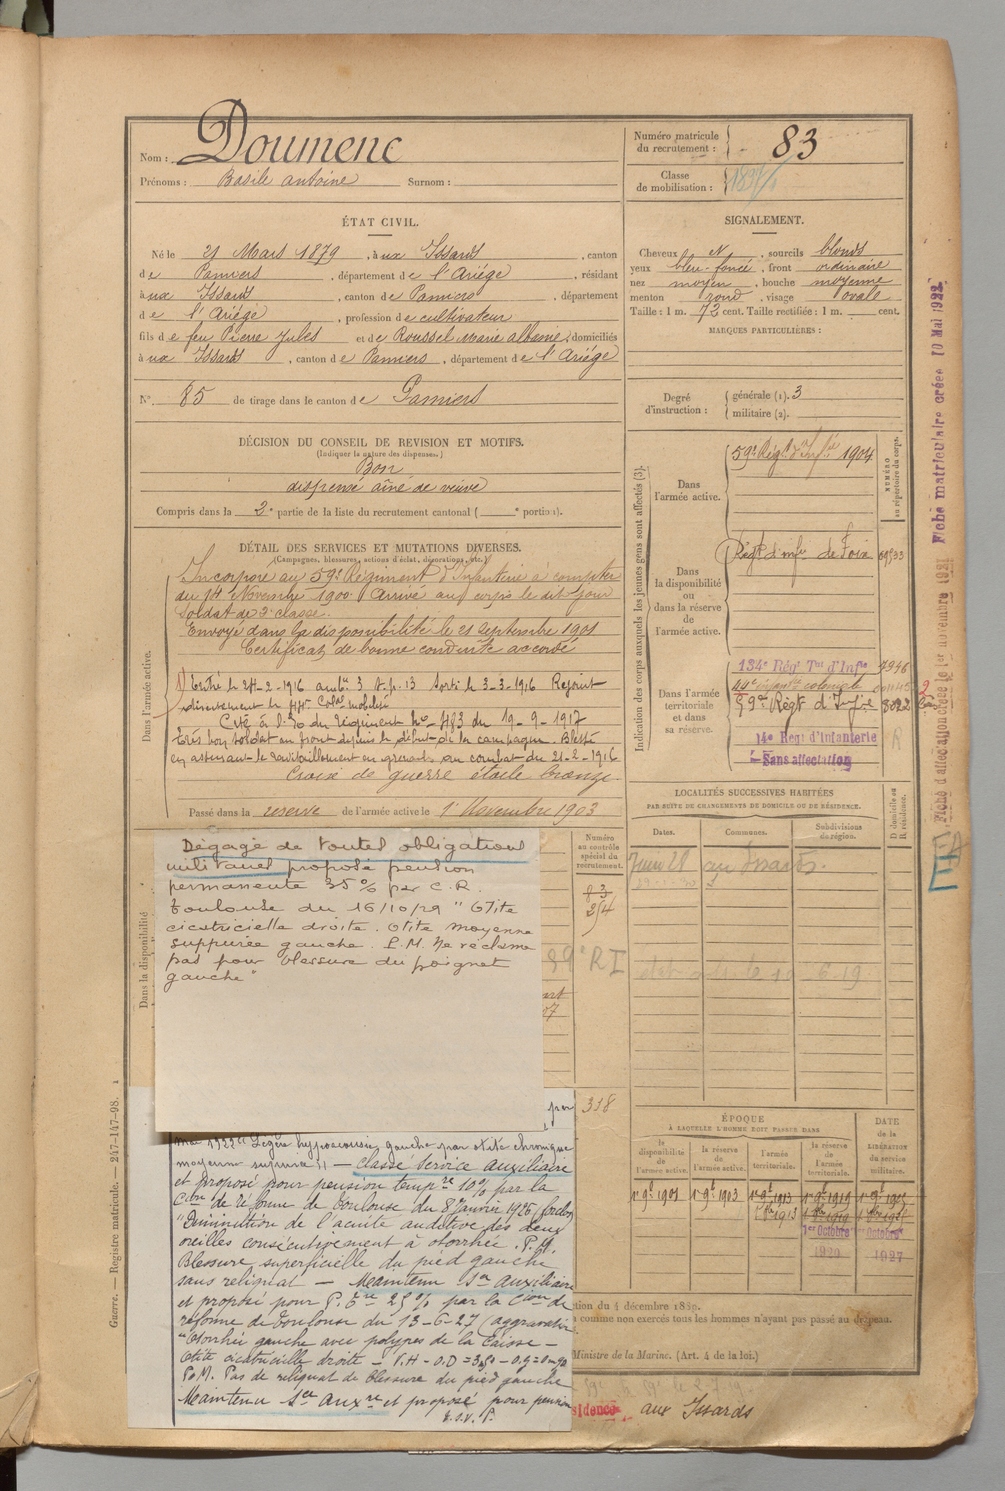 Nom : Doumenc
Prénoms : Basile antoine Surnom :
Numéro matricule du recrutement : 83
Classe de mobilisation :
ÉTAT CIVIL.
Né le 21 Mars 1879, à ux Issards, canton
de Pamiers, département de l'Ariége, résidant
à ux Issards, canton de Pamiers, département
de l'Ariége, profession de cultivateur
fils de feu Pierre Jules et de Roussel Marie albanie, domiciliés
à ux Issards, canton de Pamiers, département de l'Ariége
N° 85 de tirage dans le canton de Pamiers
SIGNALEMENT.
Cheveux et, sourcils blonds
yeux bleu-foncé, front ordinaire
nez moyen, bouche moyenne
menton rond, visage ovale
Taille : 1 m. 72 cent. Taille rectifiée : 1 m. cent.
MARQUES PARTICULIÈRES :
Degré d'instruction : générale (1). 3
militaire (2).
DÉCISION DU CONSEIL DE REVISION ET MOTIFS.
(Indiquer la nature des dispenses.)
Bon
dispensé aîné de veuve
Compris dans la 2e partie de la liste du recrutement cantonal ( e portion).
DÉTAIL DES SERVICES ET MUTATIONS DIVERSES.
(Campagnes, blessures, actions d'éclat, décorations, etc.)
Dans l'armée active.
Incorporé au 59e Régiment d'Infanterie à compter
du 14 Novembre 1900. Arrivé au corps le dit jour
Soldat de 2e classe.
Envoyé dans la disponibilité le 21 Septembre 1901
Certificat de bonne conduite accordé
Entré le 24-2-1916 amb. 3 Sorti le 3-3-1916 Rejoint
directement le 44e Colal mobilisé
Cité à l'. du régiment no 483 du 19-9-1917
Très bon soldat au front depuis le début de la campagne. Blessé
en assurant le ravitaillement en grenades au combat du 21-2-1916
Croix de guerre étoile bronze.
Passé dans la réserve de l'armée active le 1er Novembre 1903
Indication des corps auxquels les jeunes gens sont affectés (3).
NUMÉRO au répertoire du corps.
Dans l'armée active.
59e Régt. d'Infie 1904
Dans la disponibilité ou dans la réserve de l'armée active.
Régt d'infie de Foix
Dans l'armée territoriale et dans sa réserve.
134e Régt Tal d'Infie 4946
44e infantie coloniale
59e Régt d'Infie
14e Regt d'Infanterie
Sans affectation
Fiche matriculaire créée 10 Mai 1922
Fiche d'affectation créée le 1er novembre 1921
LOCALITÉS SUCCESSIVES HABITÉES
PAR SUITE DE CHANGEMENTS DE DOMICILE OU DE RÉSIDENCE.
D domicile ou R résidence.
Dates. Communes. Subdivisions de région.
Juin 28 aux Issards.
Dans la disponibilité
Dégagé de toutes obligations
militaires proposé pension
permanente 35% par C.R.
Toulouse du 16/10/29 " Otite
cicatricielle droite. Otite moyenne
suppurée gauche. P.M. Ne réclame
pas pour blessure du poignet
gauche"
Numéro au contrôle spécial du recrutement.
83
59e RI
318
mai 1922 " Légère hypoacousie gauche par otite chronique
moyenne — classé Service auxiliaire
et proposé pour pension tempre 10% par la
Cion de réforme de Toulouse du 8 Janvier 1925
"Diminution de l'acuité auditive des deux
oreilles consécutivement à otorrhée. P.M.
Blessure superficielle du pied gauche
sans reliquat — Maintenu Sce Auxiliaire
et proposé pour P. Tre 25% par la Cion de
réforme de Toulouse du 13-6-27 (aggravation
"Otorrhée gauche avec polypes de la Caisse -
Otite cicatricielle droite -
P.M. Pas de reliquat de blessure du pied gauche
Maintenu Sce auxre et proposé pour pension
T.S.V.P.
ÉPOQUE
À LAQUELLE L'HOMME DOIT PASSER DANS
la disponibilité de l'armée active. la réserve de l'armée active. l'armée territoriale. la réserve de l'armée territoriale.
DATE de la LIBÉRATION du service militaire.
1er 9bre 1901 1er 9bre 1903 1er 9bre 1913 1er 9bre 1919
1er Octobre 1920
1er Octobre 1927
ction du 4 décembre 1889.
comme non exercés tous les hommes n'ayant pas passé au drapeau.
Ministre de la Marine. (Art. 4 de la loi.)
sidence aux Issards
Guerre. — Registre matricule. — 247-147-98.